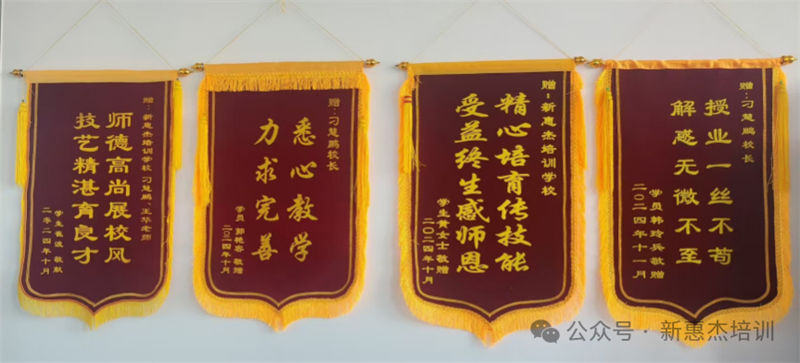 赠：新惠杰培训学校 刁慧鹏、王华老师
师德高尚展校风
技艺精湛育良才
学生 敬献
二零二四年十月
赠：刁慧鹏校长
悉心教学
力求完善
学员 郭艳春 敬赠
二〇二四年十月
赠：新惠杰培训学校
精心培育传技能
受益终生感师恩
学生黄女士 敬赠
二〇二四年十月
赠：刁慧鹏校长
授业一丝不苟
解惑无微不至
学员韩玲兵敬赠
二〇二四年十一月
公众号 · 新惠杰培训